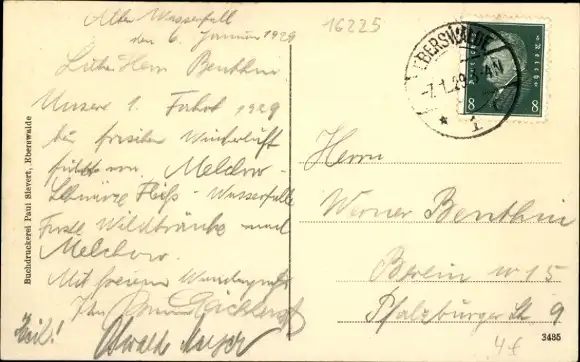 Alter Wasserfall
den 6. Januar 1929
16225
Lieber Herr Benthin
Unsere 1. Fahrt 1929
bei frischer Winterluft
führte von Melchow -
Schwärze Fließ - Wasserfall
Forst Wildtränke nach
Melchow.
Mit freiem Wandergruß
Ihr
Heil! Oswald Meyer
Buchdruckerei Paul Sievert, Eberswalde
EBERSWALDE
-7.1.29.3-4N
Deutsches Reich
8 8
Herrn
Werner Benthin
Berlin W 15
Pfalzburger Str 9
3485